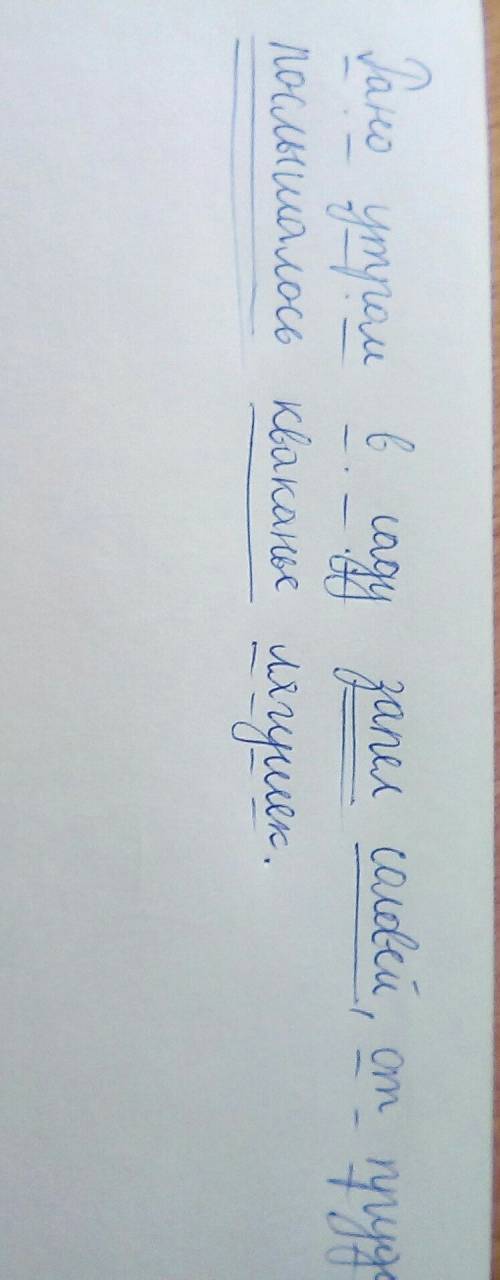 Рано утром в саду запел саловей, от пруда
послышалось кваканье лягушек.